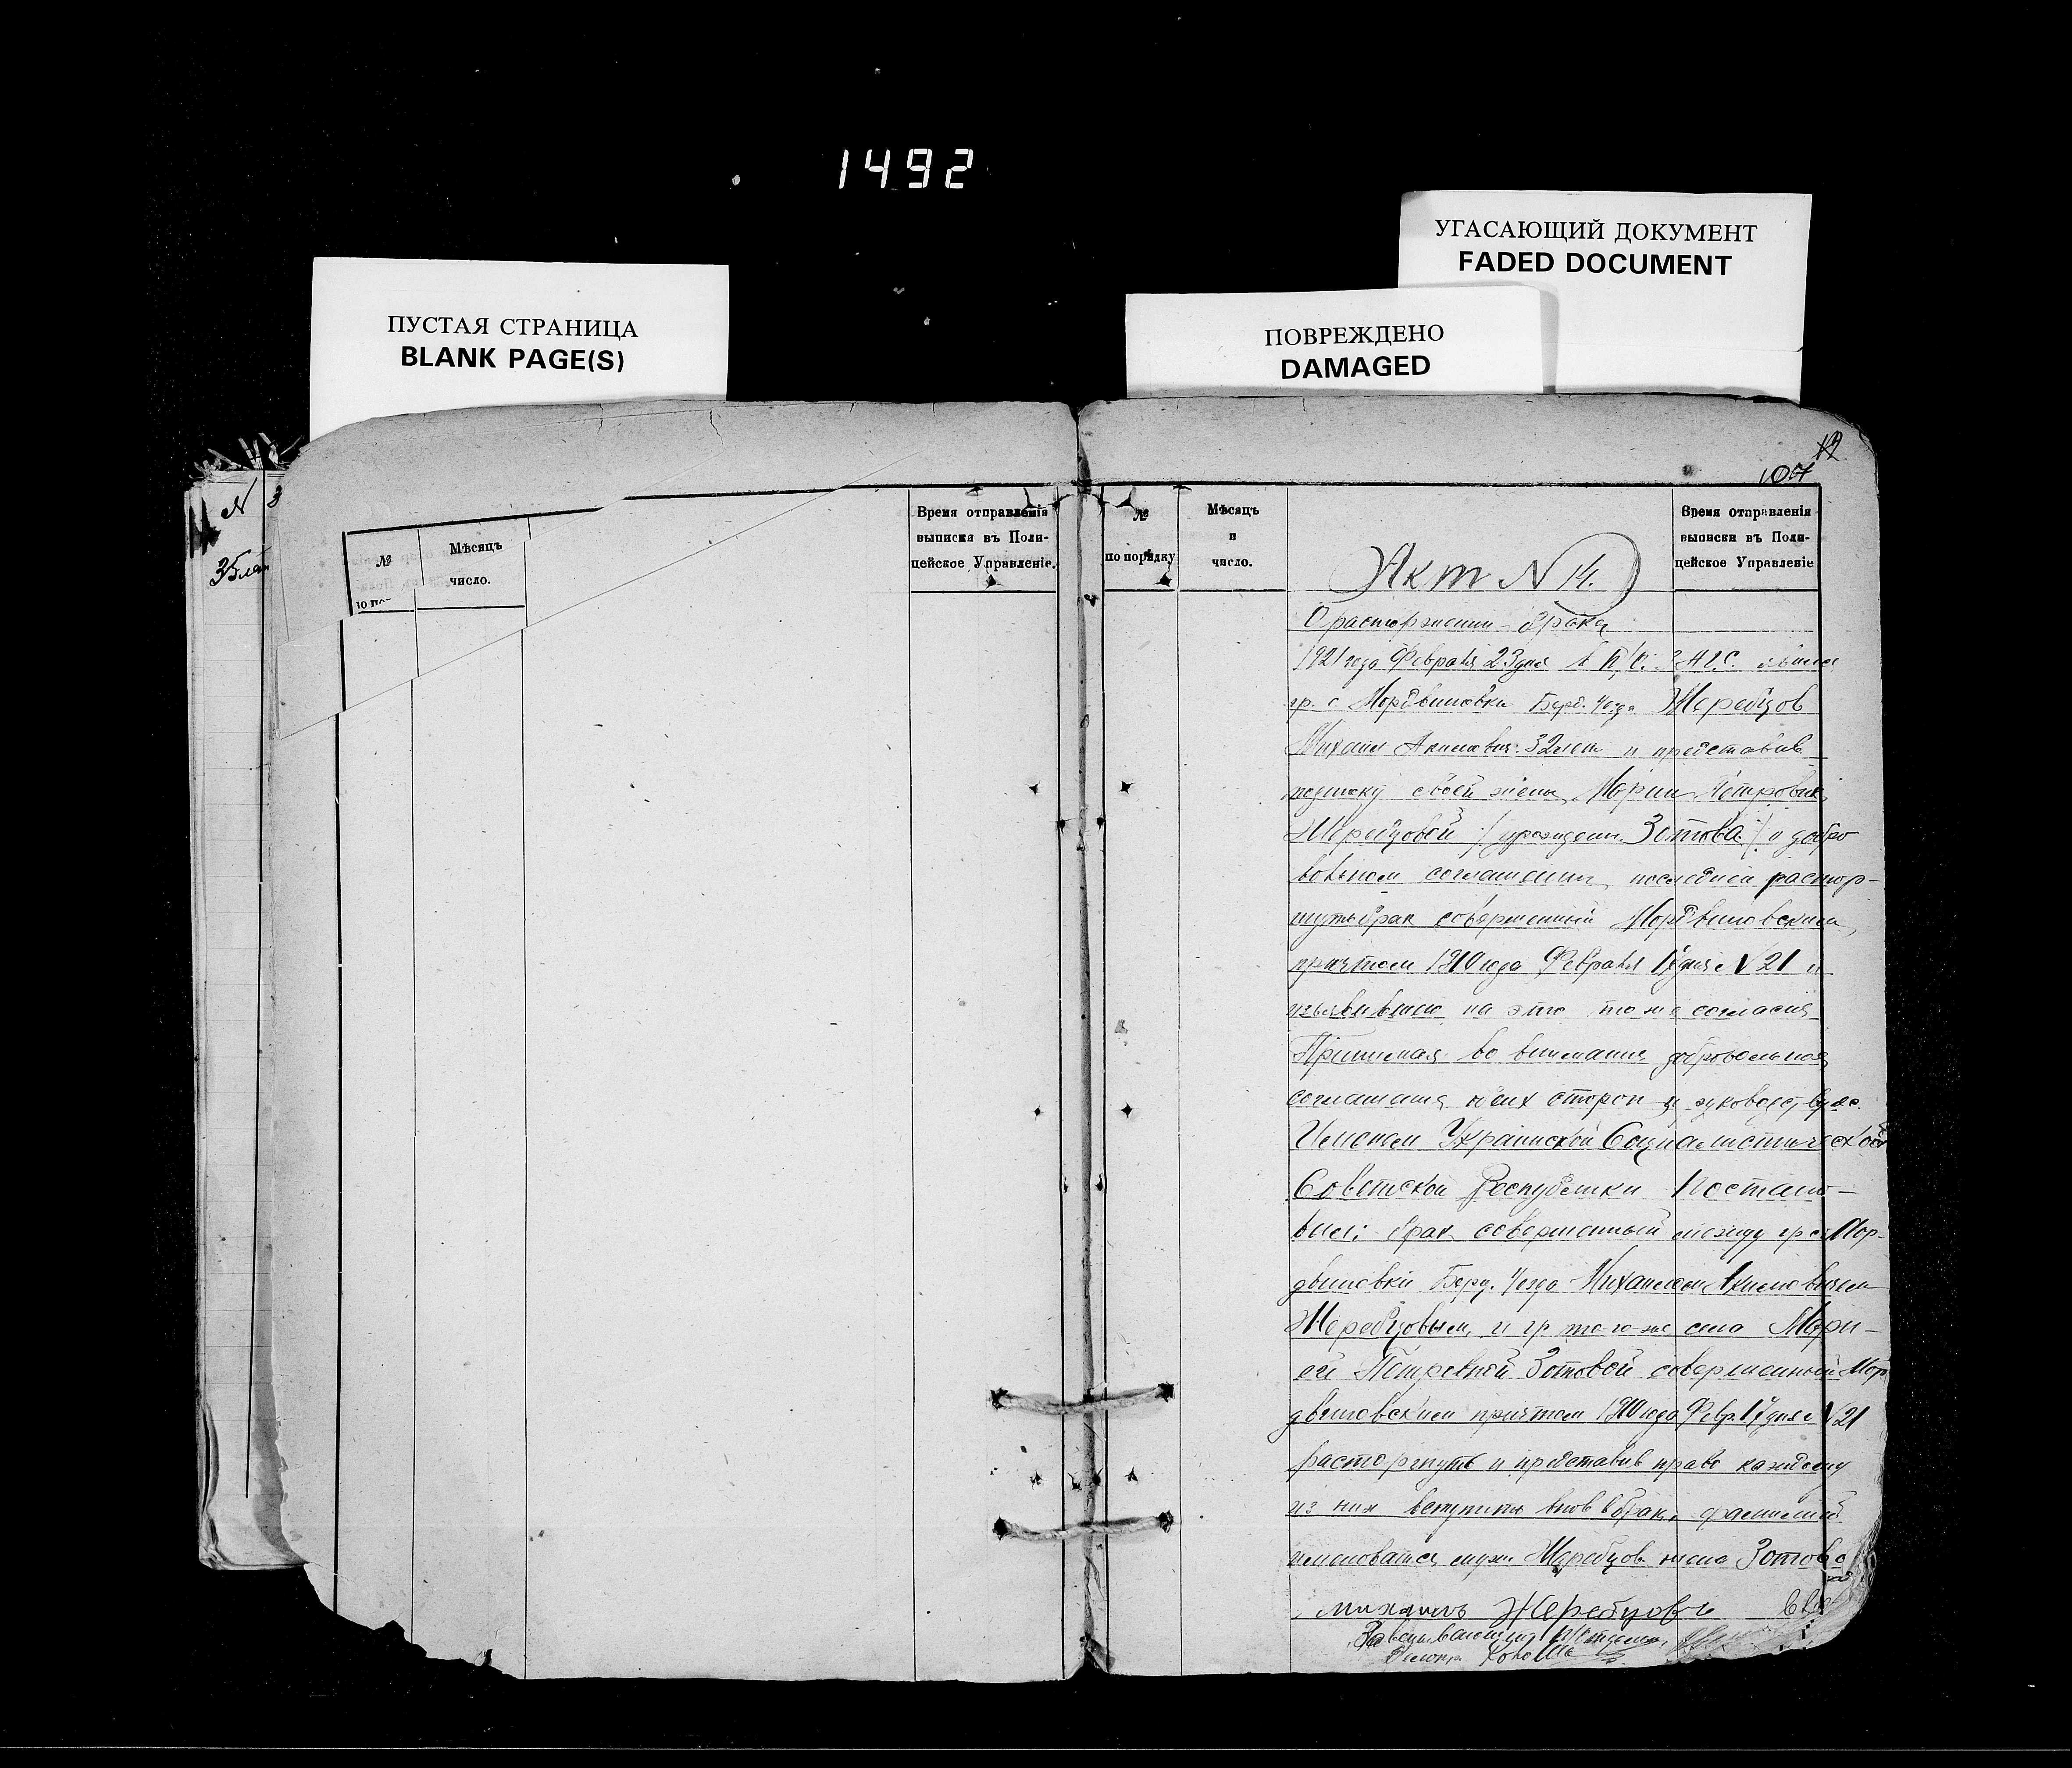 1492
УГАСАЮЩИЙ ДОКУМЕНТ
FADED DOCUMENT
ПУСТАЯ СТРАНИЦА
BLANK PAGE(S)
ПОВРЕЖДЕНО
DAMAGED
107
N 3
№
Мѣсяцъ
число.
Время отправленія
выписки въ Поли-
цейское Управленіе.
№
по порядку
Мѣсяцъ
и
число.
Время отправленія
выписки въ Поли-
цейское Управленіе
Акт N 14.
О расторжении брака
1921 года Февраля 23 дня в
гр. с Мордвиновки Берд. Уезда Жеребцов
Михаил Акимович 32 лет и представив
подписку своей жены Марии Петровны
Жеребцовой /урожденн. Зотова/ о добро
вольном соглашении последней растор-
гнуть брак совершенный Мордвиновским
причтом 1910 года Февраля 17 дня с N 21 и
изъявившею на это тоже согласия
Принимая во внимания добровольная
соглашения сторон и руководствуясь
Именем Украинской Социалистической
Советской Республики Постано-
вил: брак совершенный между гр с Мор-
двиновки Берд. Уезда Михаилом Акимовичем
Жеребцовым и гр того-же села Мари-
ей Петровной Зотовой совершенный Мор
двиновским причтом 1910 года Февр. 17 дня с N 21
расторгнуть и представив право каждому
из них вступить вновь в брак, фамилией
именоватся муж Жеребцов жена Зотова
михаилъ Жеребцовъ
Заведывающий